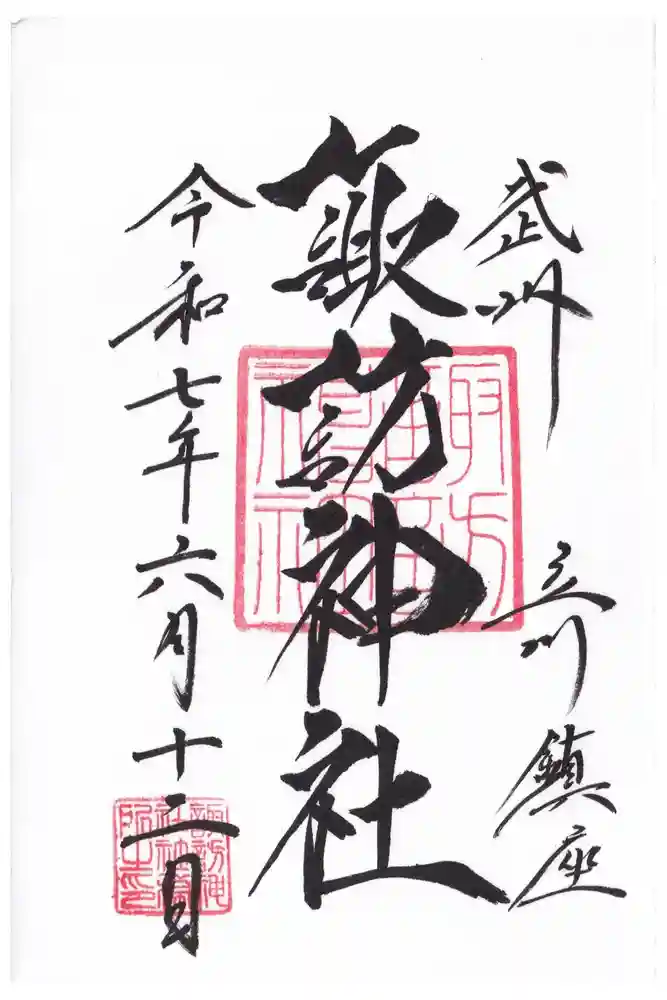 武州 立川鎮座
諏訪神社
令和七年六月十二日